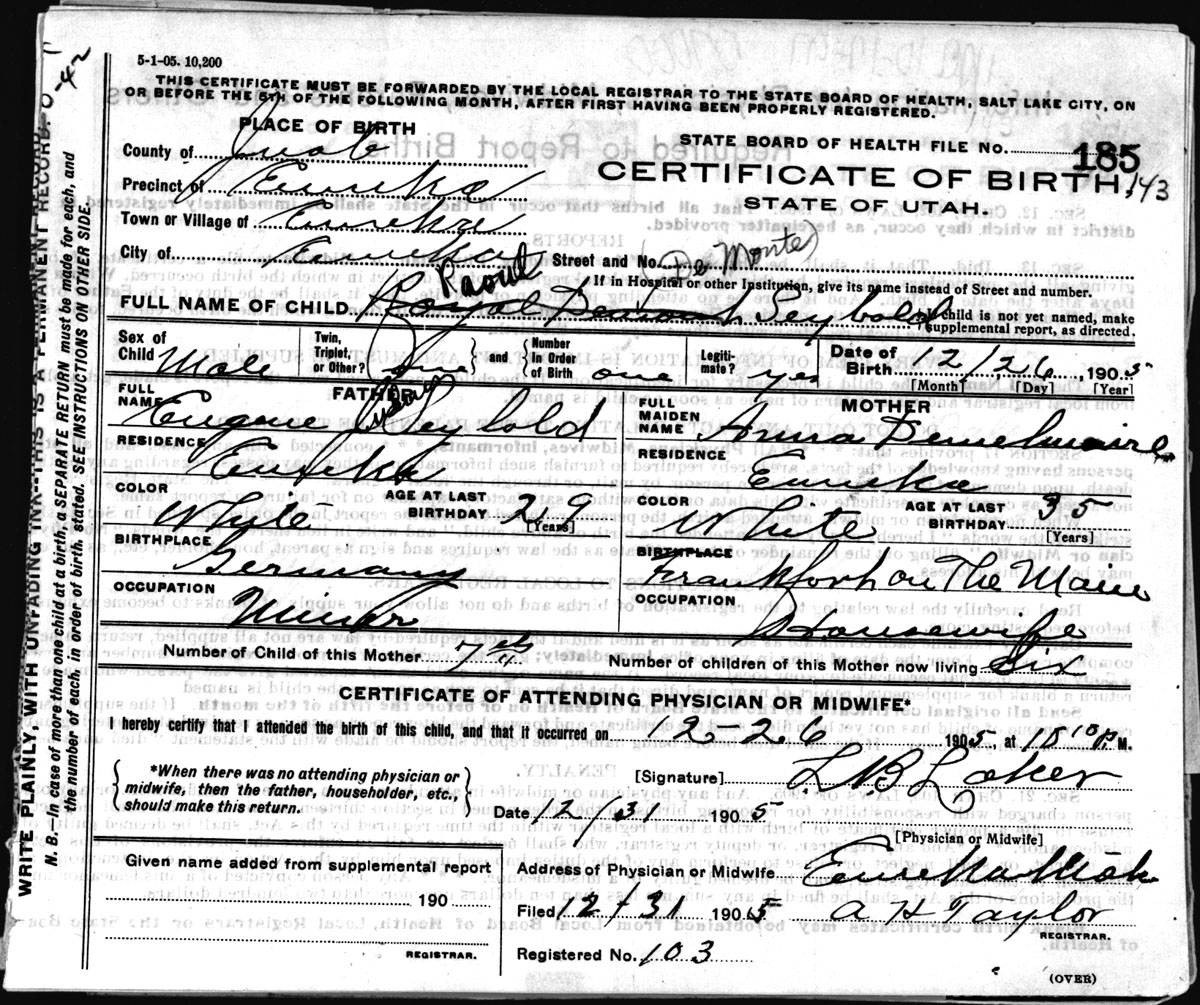 5-1-05. 10,200
THIS CERTIFICATE MUST BE FORWARDED BY THE LOCAL REGISTRAR TO THE STATE BOARD OF HEALTH, SALT LAKE CITY, ON
OR BEFORE THE 5TH OF THE FOLLOWING MONTH, AFTER FIRST HAVING BEEN PROPERLY REGISTERED.
PLACE OF BIRTH
STATE BOARD OF HEALTH FILE NO. 185
143
County of Juab
CERTIFICATE OF BIRTH
Precinct of Eureka
STATE OF UTAH.
Town or Village of Eureka
City of Eureka Street and No. (De Monte)
If in Hospital or other Institution, give its name instead of Street and number.
Raoul
FULL NAME OF CHILD Royal Seybold
If child is not yet named, make supplemental report, as directed.
Sex of Child Male Twin, Triplet, or Other? One and Number In Order of Birth one Legiti- mate? yes Date of Birth 12/26, 1905
[Month] [Day] [Year]
FATHER
MOTHER
FULL NAME Eugene Seybold
FULL MAIDEN NAME Anna
RESIDENCE Eureka
RESIDENCE Eureka
COLOR White AGE AT LAST BIRTHDAY 29 [Years]
COLOR White AGE AT LAST BIRTHDAY 35 [Years]
BIRTHPLACE Germany
BIRTHPLACE Frankforh on The Main
OCCUPATION Miner
OCCUPATION Housewife
Number of Child of this Mother 7th
Number of children of this Mother now living Six
CERTIFICATE OF ATTENDING PHYSICIAN OR MIDWIFE*
I hereby certify that I attended the birth of this child, and that it occurred on 12-26 1905, at P. M.
*When there was no attending physician or
midwife, then the father, householder, etc.,
should make this return.
[Signature]
Date 12/31 1905
[Physician or Midwife]
Given name added from supplemental report
Address of Physician or Midwife Eureka Utah
190
Filed 12/31 1905 A H Taylor
REGISTRAR.
REGISTRAR.
Registered No. 103
(OVER)
WRITE PLAINLY, WITH UNFADING INK--THIS IS A PERMANENT RECORD.
N. B.—In case of more than one child at a birth, a SEPARATE RETURN must be made for each, and
the number of each, in order of birth, stated. SEE INSTRUCTIONS ON OTHER SIDE.